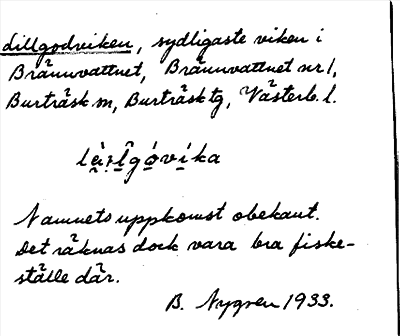 Lillgodviken, sydligaste viken i
Brännvattnet, Brännvattnet nr 1,
Burträsk sn, Burträsk tg, Västerb. l.
Namnets uppkomst obekant.
Det räknas dock vara bra fiske-
ställe där.
B. Nygren 1933.